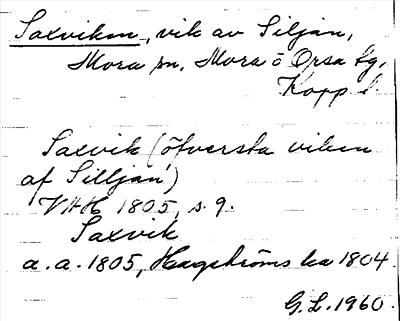 Saxviken, vik av Siljan,
Mora sn, Mora o Orsa tg,
Kopp l.
Saxvik (öfversta viken
af Silljan)
VHH 1805, s. 9.
Saxvik
a. a. 1805, Hagströms ka 1804.
G. L. 1960.